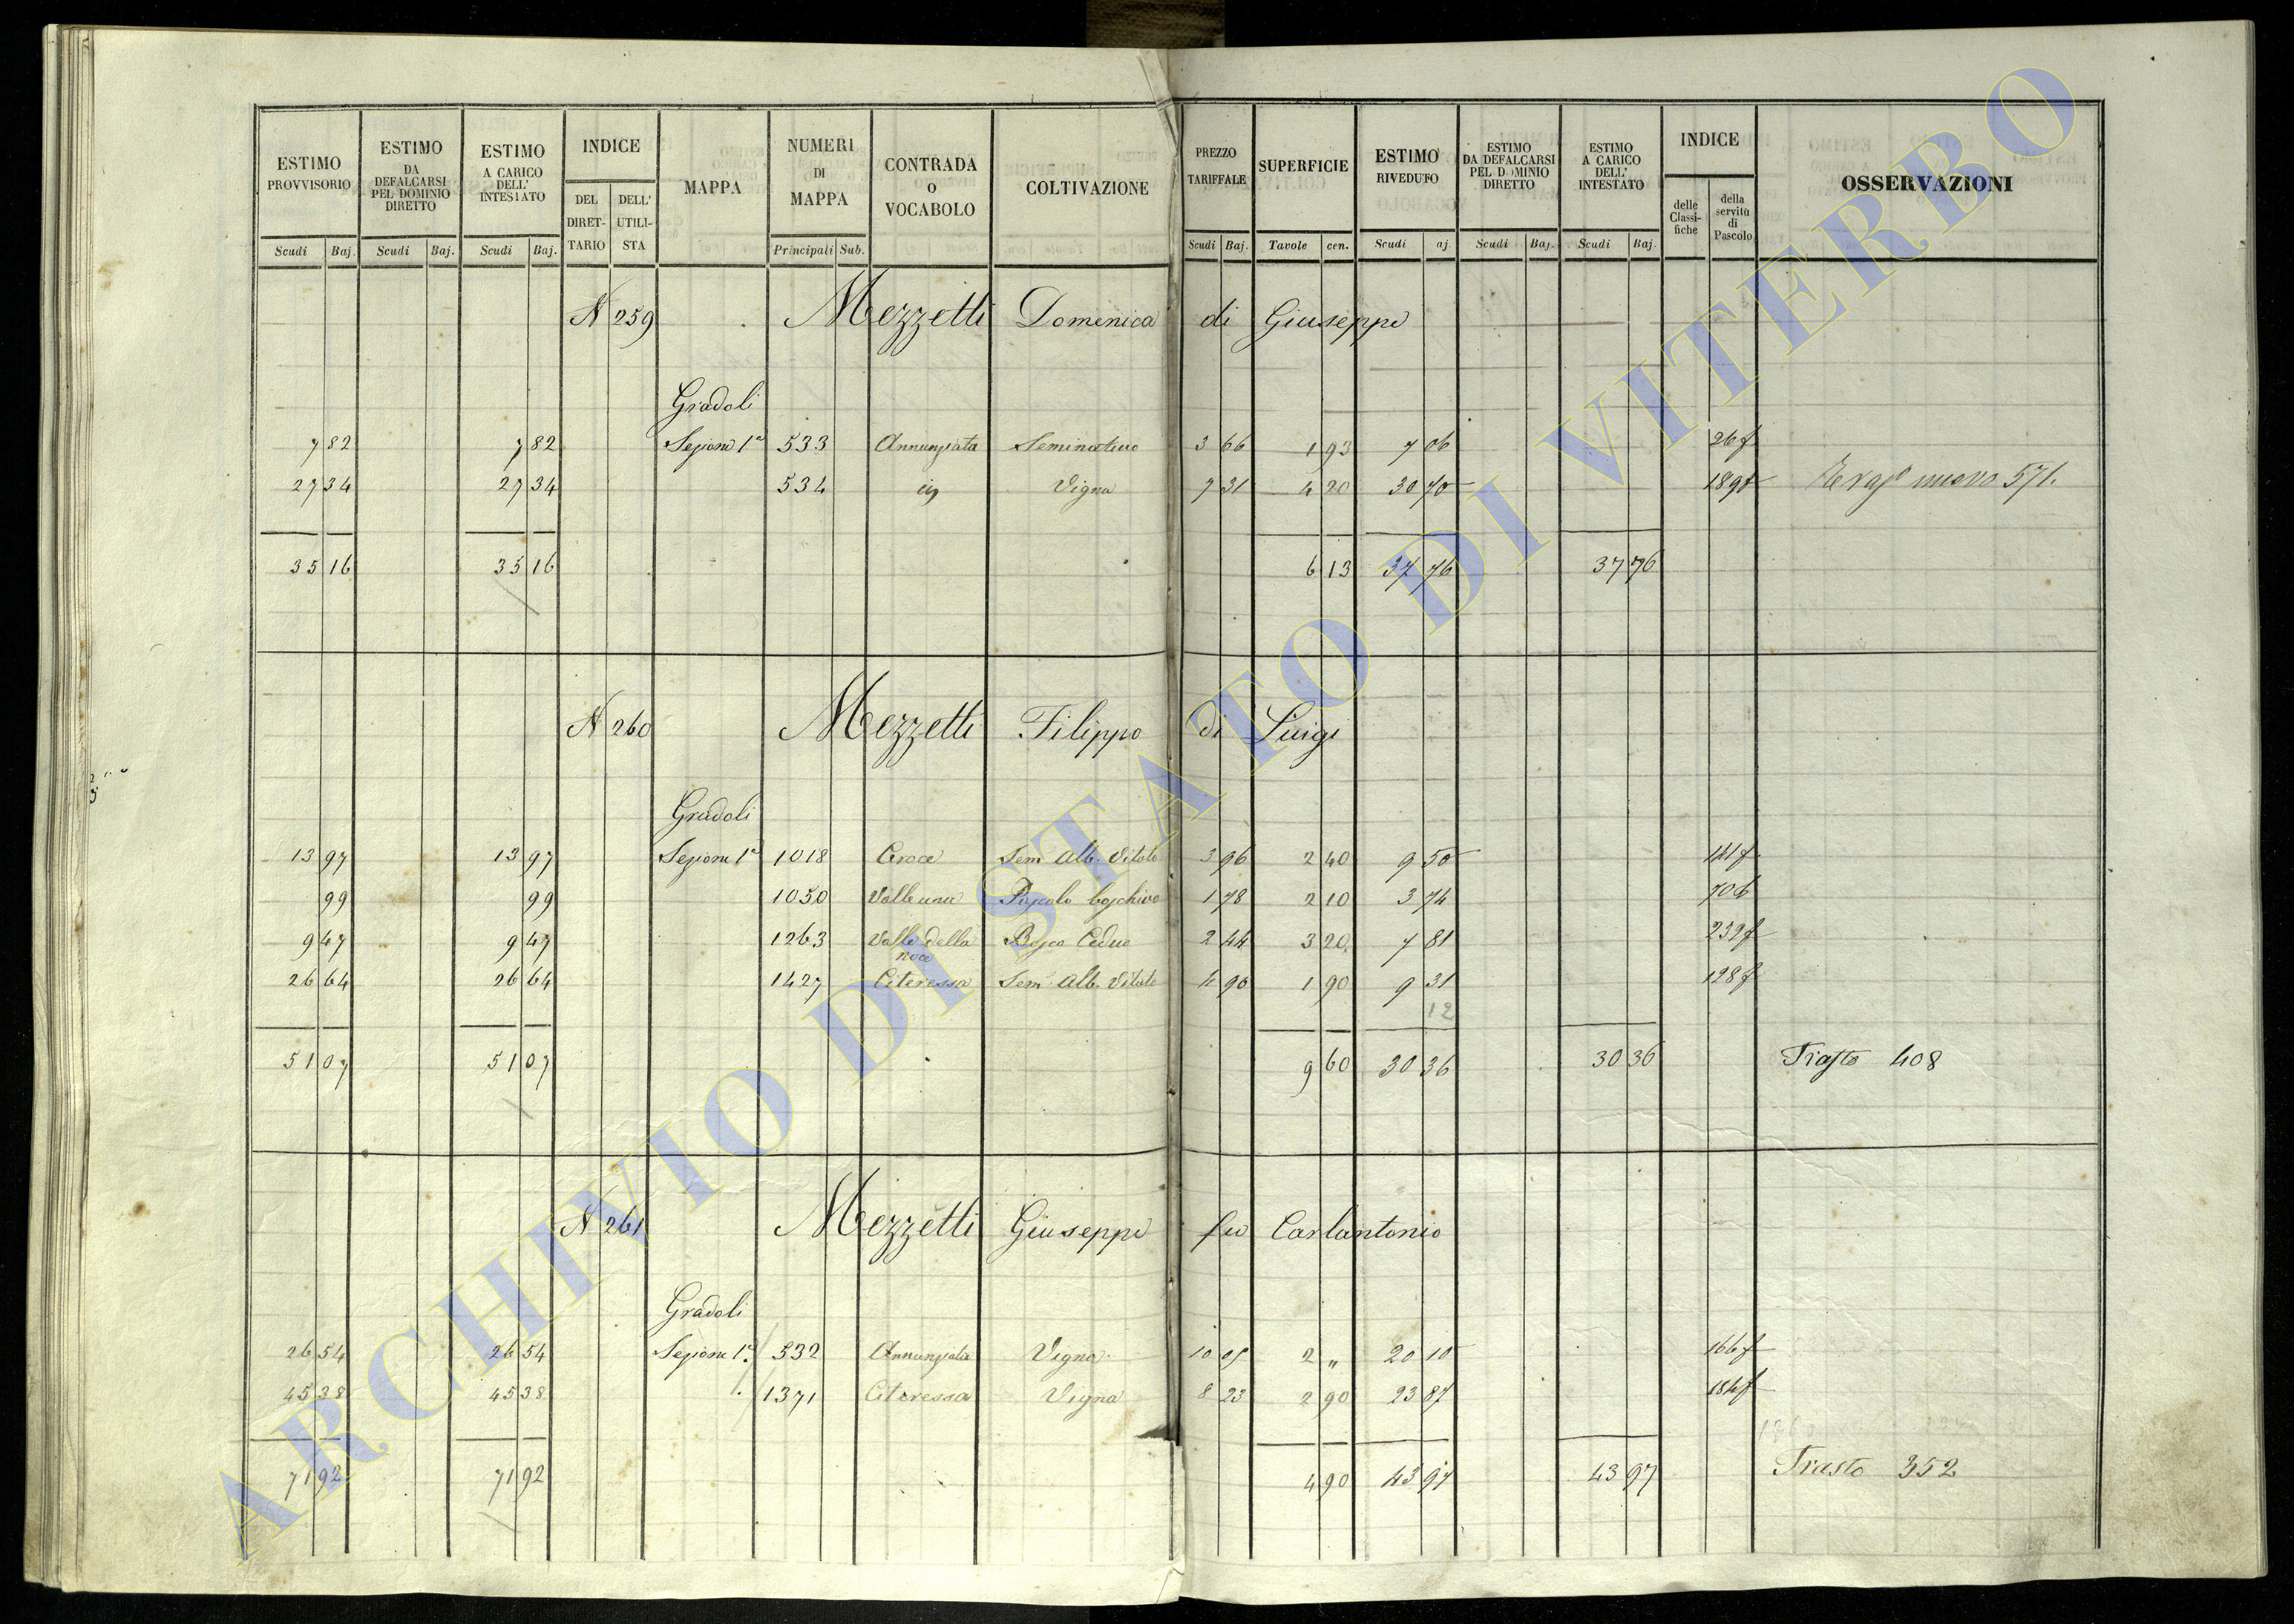 ESTIMO PROVVISORIO ESTIMO DA DEFALCARSI PEL DOMINIO DIRETTO ESTIMO A CARICO DELL' INTESTATO INDICE DEL DIRETTARIO DELL' UTILISTA MAPPA NUMERI DI MAPPA CONTRADA O VOCABOLO COLTIVAZIONE PREZZO TARIFFALE SUPERFICIE ESTIMO RIVEDUTO ESTIMO DA DEFALCARSI PEL DOMINIO DIRETTO ESTIMO A CARICO DELL' INTESTATO INDICE delle Classifiche della servitù di Pascolo OSSERVAZIONI
Scudi Baj. Scudi Baj. Scudi Baj. Principali Sub. Scudi Baj. Tavole cen. Scudi aj. Scudi Baj. Scudi Baj.
N 259 Mezzetti Domenica di Giuseppe
Gradoli
7 82 7 82 Sezione 1a 533 Annunziata Seminativo 3 66 1 93 7 06 26f
27 34 27 34 534 Vigna 7 31 4 20 30 70 189f nuovo 571.
35 16 35 16 6 13 37 76 37 76
N 260 Mezzetti Filippo di Luigi
Gradoli
13 97 13 97 Sezione 1a 1018 Croce Sem Alb. Vitato 3 96 2 40 9 50 141f
99 99 1050 Pascolo boschivo 1 78 2 10 3 74 706
9 47 9 47 1263 Valle della noce Bosco Ceduo 2 44 3 20 7 81 239f
26 64 26 64 1427 Citeressa Sem Alb. Vitato 4 90 1 90 9 31 128f
12
51 07 51 07 9 60 30 36 30 36 Trasto 408
N 261 Mezzetti Giuseppe fu Carlantonio
Gradoli
26 54 26 54 Sezione 1a 532 Annunziata Vigna 10 05 2 „ 20 10 166f
45 38 45 38 1371 Citeressa Vigna 8 23 2 90 23 87 184f
71 92 71 92 4 90 43 97 43 97 Trasto 352
ARCHIVIO DI STATO DI VITERBO